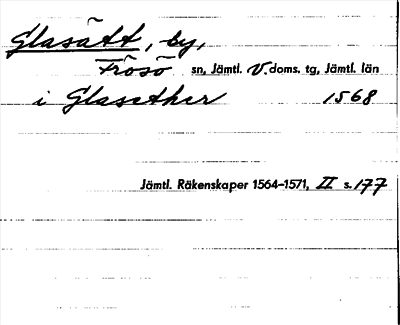 Glasätt, by,
Frösö sn, Jämtl. V. doms. tg, Jämtl. län
i Glasether 1568
Jämtl. Räkenskaper 1564–1571, II s. 177